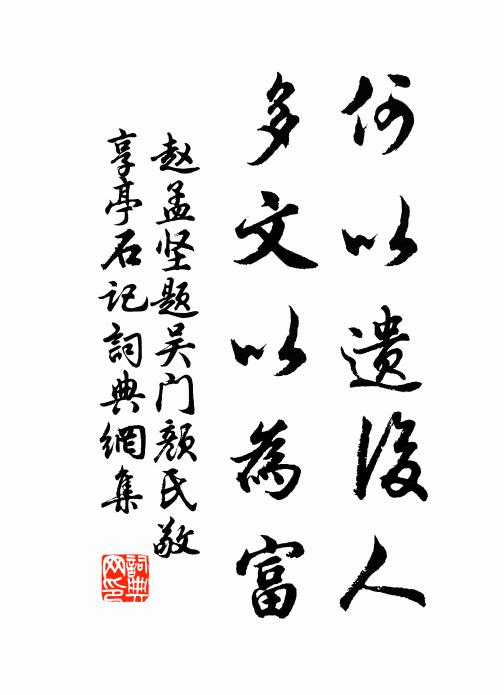 何以遺後人
多文以為富
赵孟坚题吴门颜氏敬
享亭石记詞典網集
詞典
网印